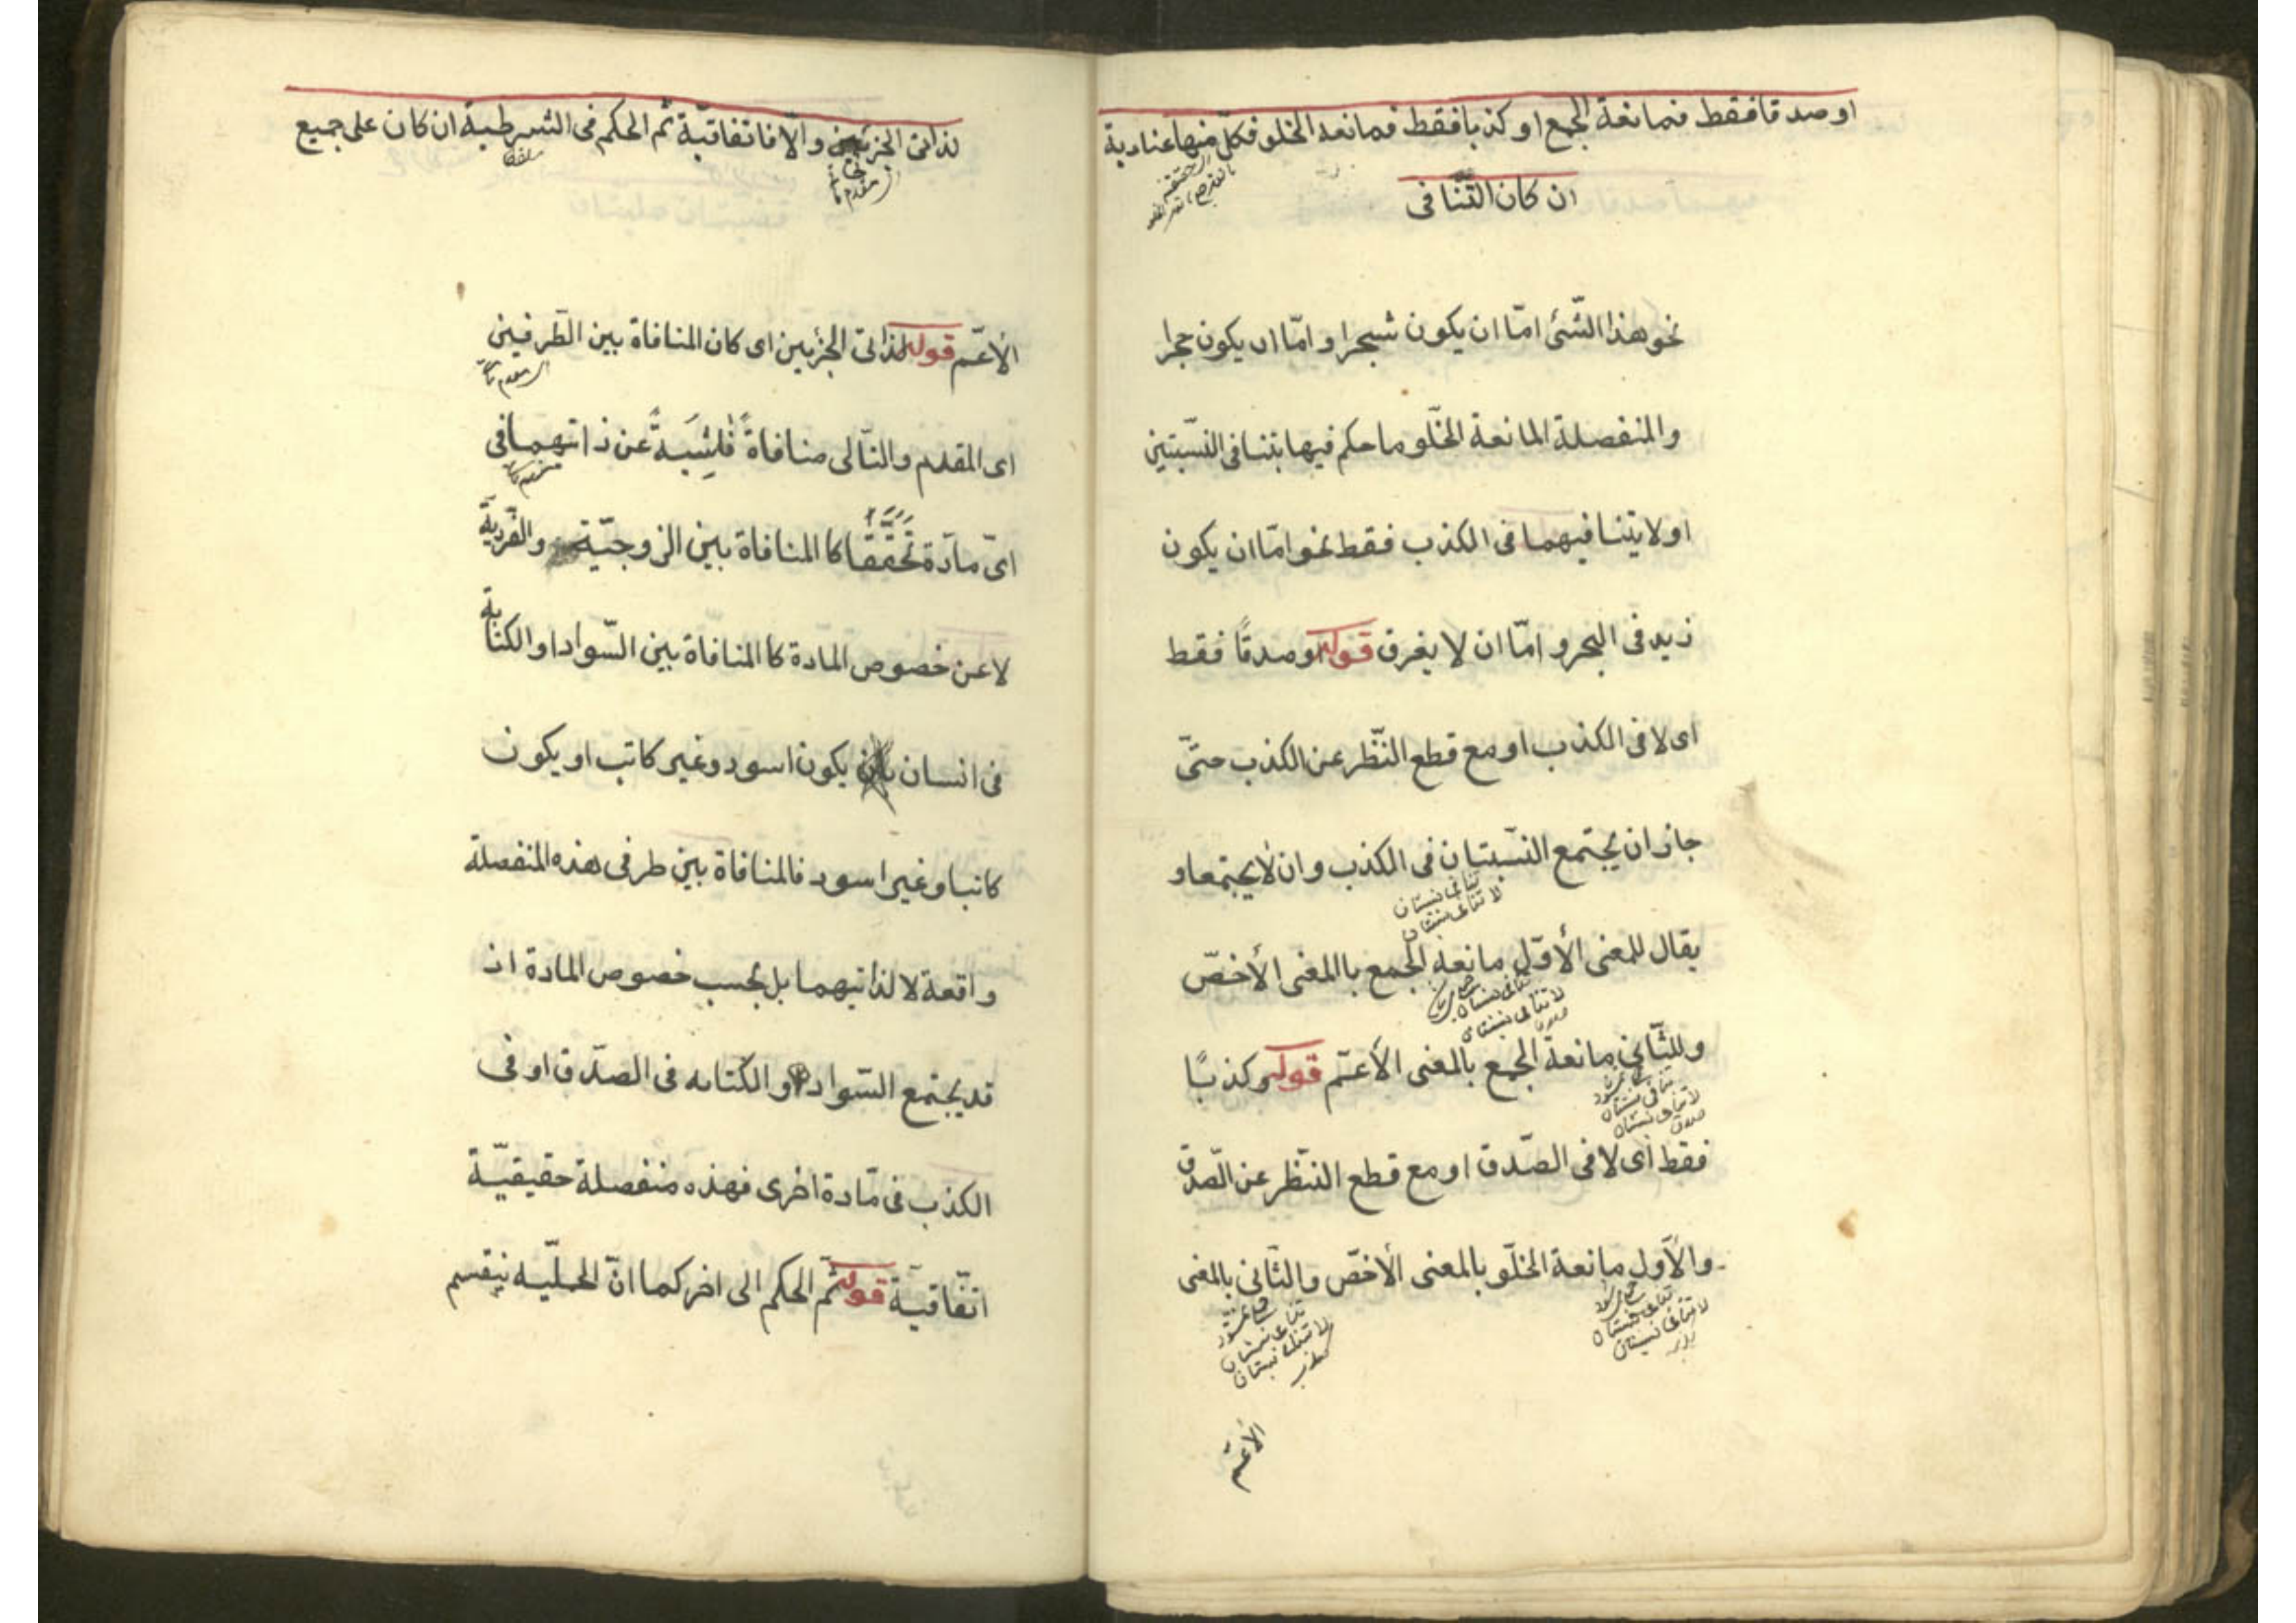 او صدقا فقط فمانعة الجمع او كذبا فقط فمانعه الخلو فكل منها عنادية
ان كان التنافى
نحو هذا الشئ امّا ان يكون شجرا و امّا ان يكون حجرا
والمنفصلة المانعة الخلّو ما حكم فيها بتنافى النسبتين
او لا يتنافيهما فى الكذب فقط نحو امّا ان يكون
زيد فى البحر و امّا ان لا يغرق قوله او صدقًا فقط
اى لا فى الكذب او مع قطع النّظر عن الكذب حتّى
جاز ان يجتمع النسبتان فى الكذب و ان لا يجتمعا و
تنافى نسبتان
لا تنافى نسبتان
يقال للمعنى الأوّل مانعة الجمع باالمعنى الأخصّ
تنافى نسبتان
لا تنافى نسبتان
وللثّانى مانعة الجمع بالمعنى الأعمّ قوله و كذبًا
تنافى نسبتان
لا تنافى نسبتان
صدق
فقط اى لا فى الصّدق او مع قطع النّظر عن الصّدق
والأوّل مانعة الخلّو بالمعنى الأخصّ والثّانى بالمعنى
تنافى نسبتان
لا تنافى نسبتان
تنافى نسبتان
لا تنافى نسبتان
الأعمّ
لذاتى الجزئين و الّا فاتفاقيّة ثم الحكم فى الشرطية ان كان على جميع
مقدم
الأعمّ قوله لذاتى الجزئين اى كان المنافاة بين الطّرفين
اى المقدم والتّالى منافاةً نْاشِيَةً عن ذاتيهما فى
اىّ مادّة تَحَقَّقَا كا المنافاة بين الزوجيّة والفرديّة
لا عن خصوص المادة كا المنافاة بين السّواد او الكتابة
فى انسان يكون اسود وغير كاتب او يكون
كاتبا و غير اسود فالمنافاة بين طرفى هذه المنفصلة
واقعة لا لذاتيهما بل بحسب خصوص المادة اذ
قد يجتمع السّواد و الكتابه فى الصدّق او فى
الكذب فى مّادة اخرى فهذه منفصلة حقيقيّة
اتّفاقيّة قوله ثمّ الحكم الى اخر كما انّ الحمليّه ينقسم